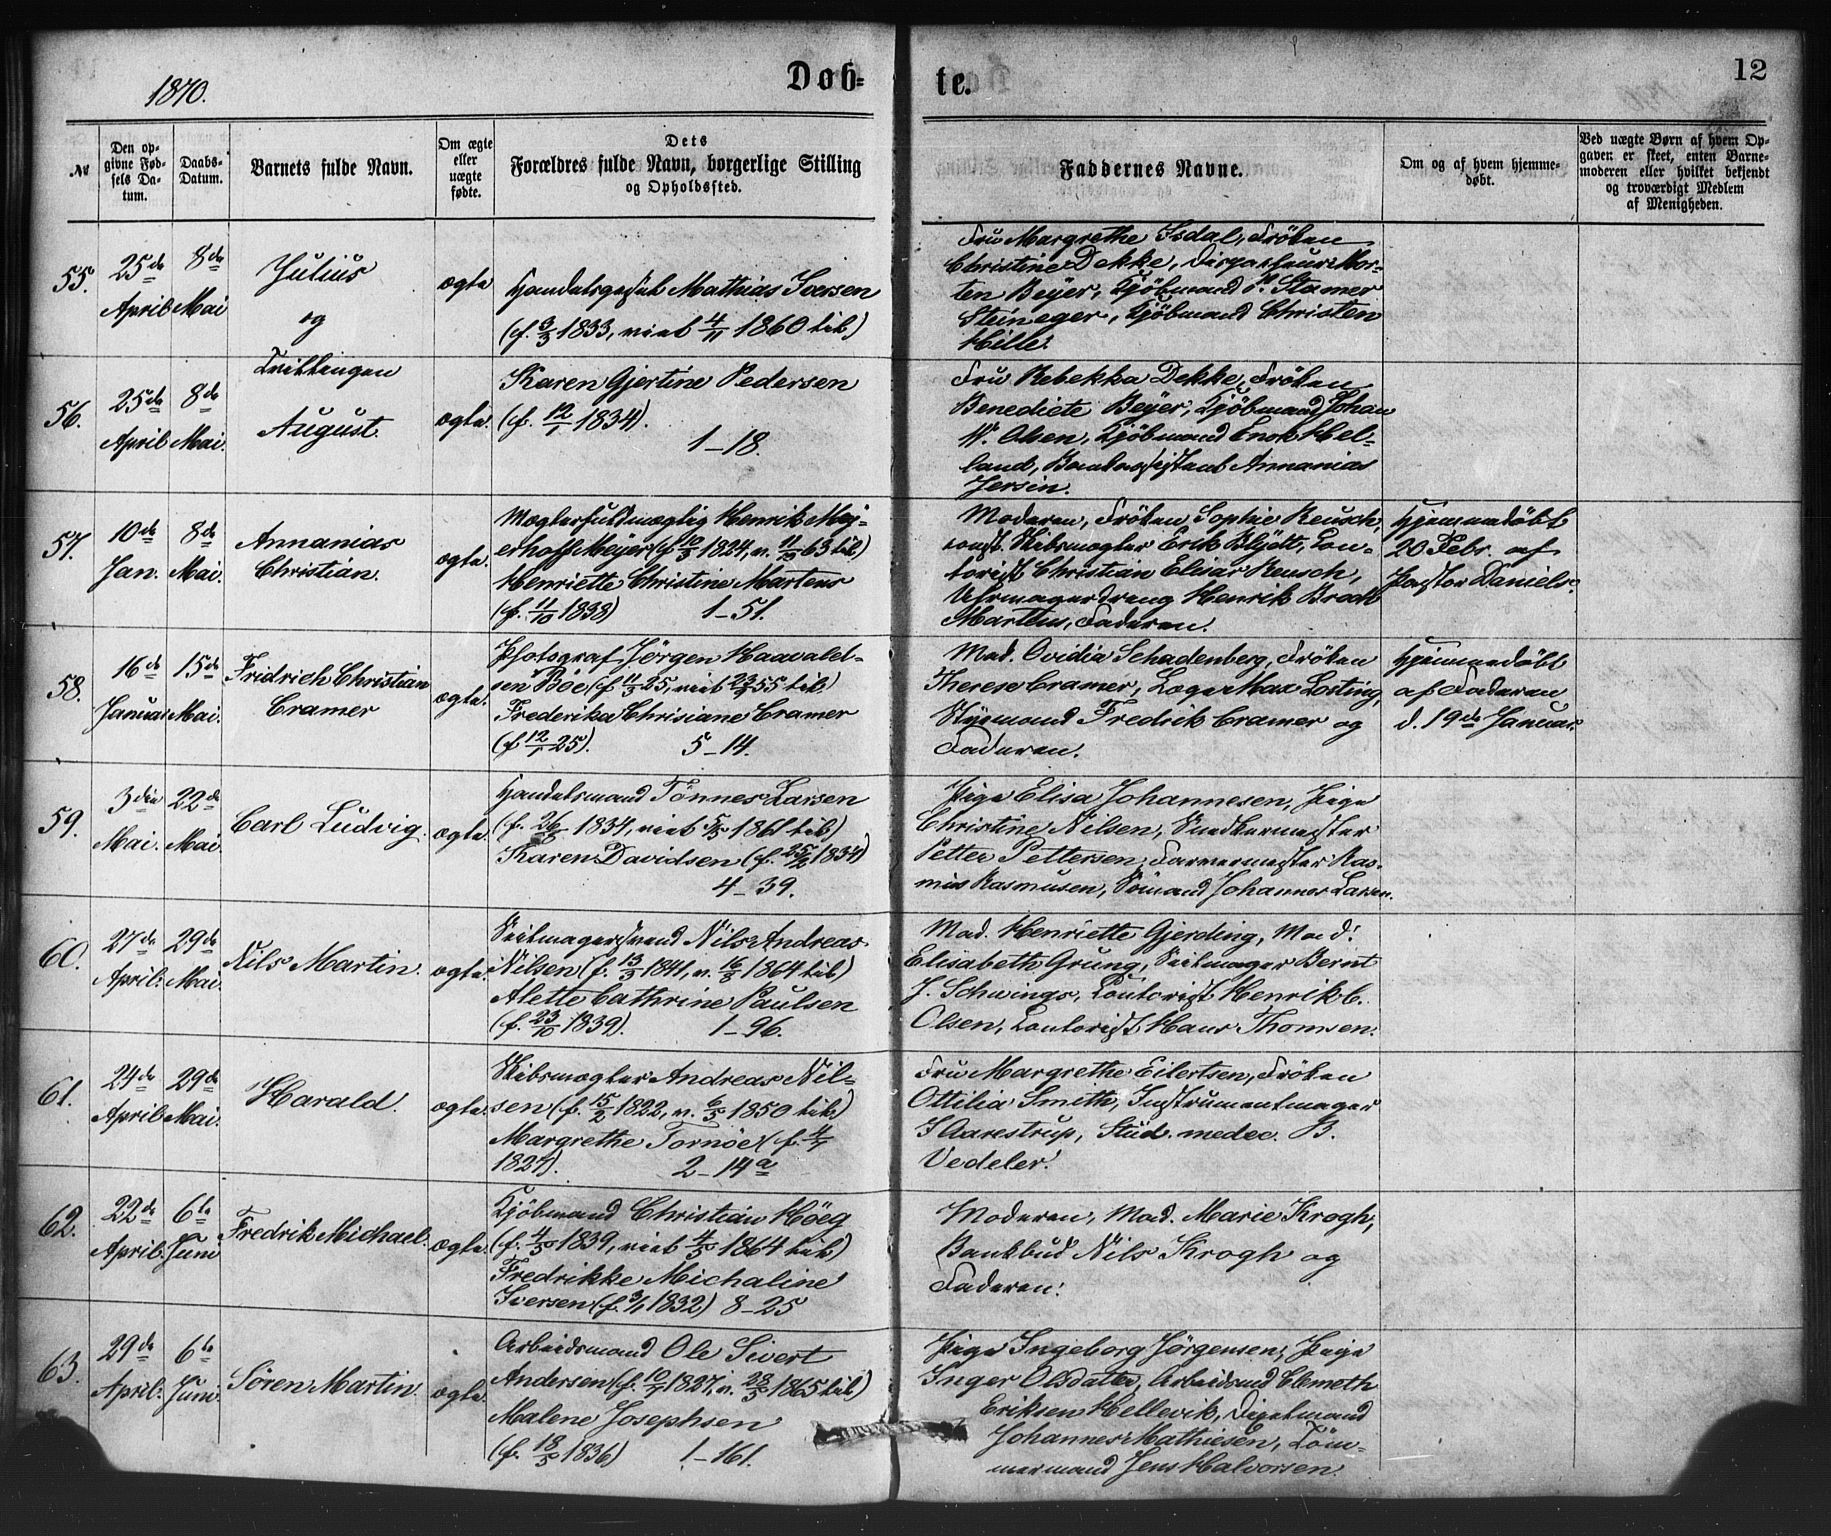 1870.
Døb-
te.
12
№
Den op-
givne Fød-
sels Da-
tum.
Daabs-
Datum.
Barnets fulde Navn.
Om ægte
eller
uægte
fødte.
Dets
Forældres fulde Navn, borgerlige Stilling
og Opholdssted.
Faddernes Navne.
Om og af hvem hjemme-
døbt.
Ved uægte Børn af hvem Op-
gaven er skeet, enten Barne-
moderen eller hvilket bekjendt
og troværdigt Medlem
af Menigheden.
55.
25de
April
8de
Mai
Julius
og
Tvillingen
ægte
Handelsgesel Mathias Iversen
(f. 3/3 1833, viet 4/11 1860 til)
Fru Margrethe Isdal, Frøken
Christine Dekke, Mor-
ten Beyer, Kjøbmand P. Stamer
Steineger, Kjøbmand Christen
Hille.
56.
25de
April
8de
Mai.
August.
ægte.
Karen Gjertine Pedersen
(f. 12/1 1834).
1-18.
Fru Rebekka Dekke, Frøken
Benedicte Beyer, Kjøbmand Johan
W. Olsen, Kjøbmand Enok Hel-
land, Bankassistent Annanias
Jersin.
57.
10de
Jan.
8de
Mai.
Annanias
Christian.
ægte.
Mæglerfuldmægtig Henrik Mej-
erhoff Meyer (f. 10/5 1824, v. 63 til)
Henriette Christine Martens
(f. 11/10 1838) 1-51.
Moderen, Frøken Sophie Reusch,
const. Skibsmægler Erik Blydt, Con-
torist Christian Elisar Reusch,
Uhrmagerdreng Henrik Broch
Martens, Faderen.
Hjemmedøbt
20 Febr. af
Pastor Daniels.
58.
16de
Januar
15de
Mai.
Fridrich Christian
Cramer
ægte.
Photograf Jørgen Haavald-
sen Bøe (f. 11/3 25, viet 55 til)
Frederika Chrisiane Cramer
(f 12/1 25). 5-14.
Mad. Ovidia Schadenberg, Frøken
Therese Cramer, Læge Max Losting,
Styrmand Fredrik Cramer og
Faderen.
Hjemmedøbt
af Faderen
d. 19de Januar.
59.
3die
Mai.
22de
Mai.
Carl Ludvig.
ægte.
Handelsmand Tønnes Larsen
(f. 1834, viet 5/5 1861 til)
Karen Davidsen (f. 1834)
4-39.
Pige Elisa Johannesen, Pige
Christine Nilsen, Snedkermester
Petter Pettersen, Farvermester Ras-
mus Rasmusen, Sømand Johannes Larsen.
60.
27de
April.
29de
Mai.
Nils Martin.
ægte.
Seilmagersvend Nils Andreas
Nilsen (f. 13/3 1841, v. 16/8 1864 til)
Alette Cathrine Paulsen
(f. 23/10 1839). 1-96.
Mad. Henriette Gjerding, Mad.
Elisabeth Grung, Seilmager Bernt
J. Schwings, Contorist Henrik C.
Olsen, Contorist Hans Thomsen.
61.
24de
April
29de
Mai.
Harald.
ægte.
Skibsmægler Andreas Nil-
sen (f. 15/2 1822, v. 6/5 1850 til)
Margrethe Tornøe (f.
1827). 2-14a
Fru Margrethe Eilertsen, Frøken
Ottilia Smith, Instrumentmager
J Aarestrup, Stud. medec. B.
Vedeler.
62.
22de
April.
6te
Juni
Fredrik Michael.
ægte.
Kjøbmand Christian Høeg
(f. 4/10 1839, viet 4/5 1864 til)
Fredrikke Michaline
Iversen (f. 3/1 1832) 8-25
Moderen, Mad. Marie Krogh,
Bankbud Nils Krogh og
Faderen.
63.
29de
April.
6te
Juni.
Søren Martin.
ægte.
Arbeidsmand Ole Sivert
Andersen (f. 10/7 1827, v. 28/5 1865 til)
Malene Josephsen
(f. 18/5 1836) 1-161.
Pige Ingeborg Jørgensen, Pige
Inger Olsdatter, Arbeidsmd Clemeth
Eriksen Hellevik,
Johannes Mathiesen, Tøm-
mermand Jens Halvorsen.